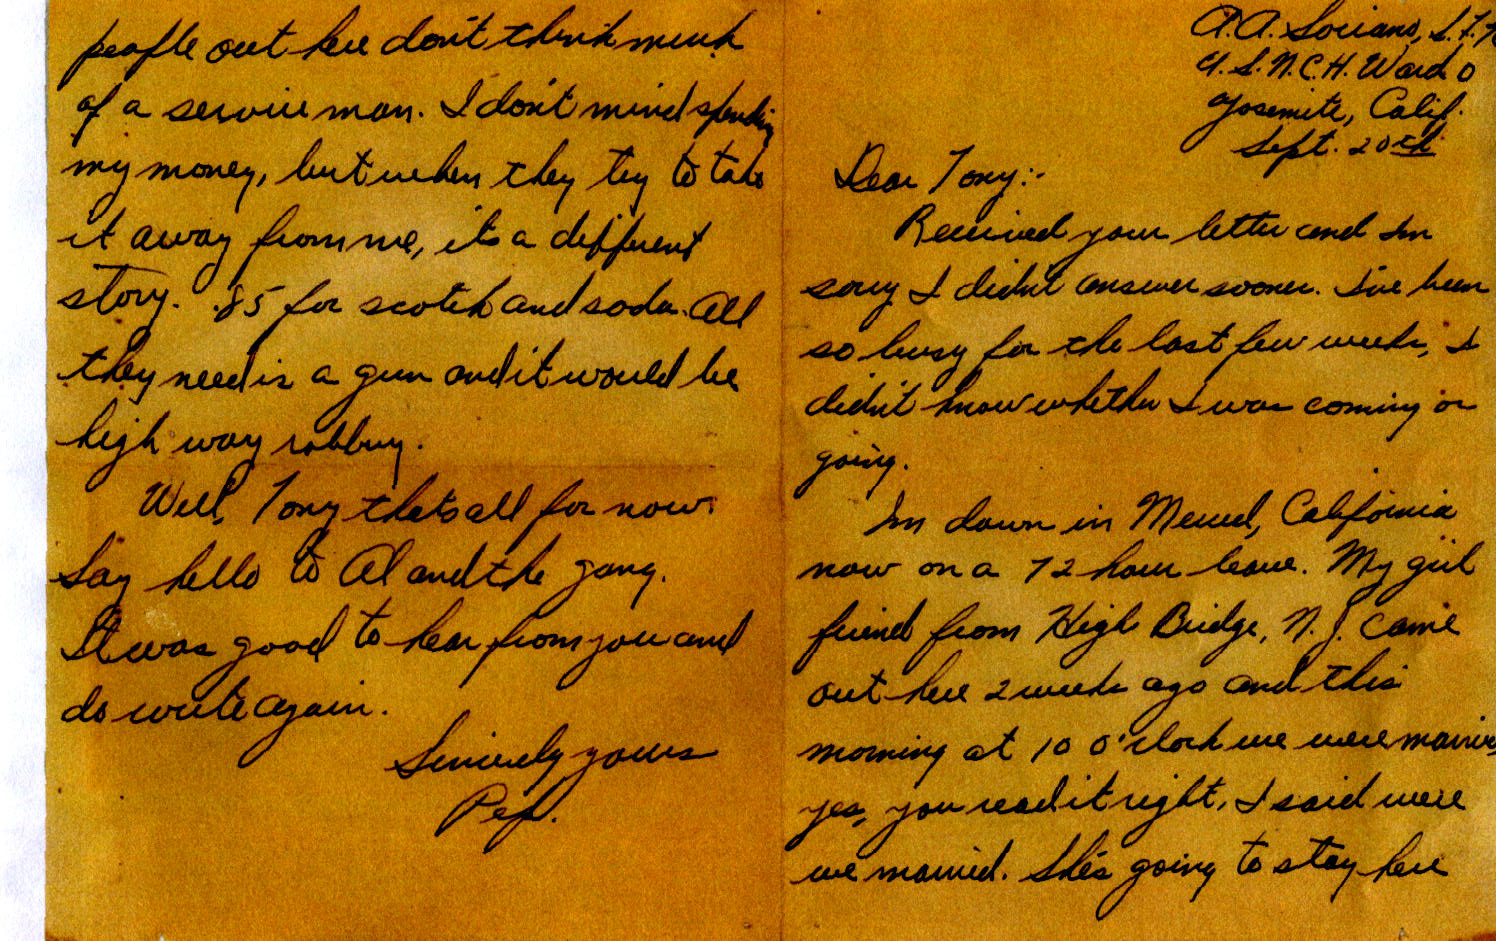 A. A. Soriano, S. F.
U. S. N. C. H. Ward O
Yosemite, Calif.
Sept. 20th
Dear Tony:-
Received your letter and Im
sorry I didn't answer sooner. I've been
so busy for the last few weeks, I
didn't know whether I was coming or
going.
Im down in Merced, California
now on a 72 hour leave. My girl
friend from High Bridge, N. J. came
out here 2 weeks ago and this
morning at 10 o'clock we were married
yes, you read it right, I said were
we married. She's going to stay here
people out here don't think much
of a service man. I don't mind spending
my money, but when they try to take
it away from me, its a different
story. .85 for scotch and soda. All
they need is a gun and it would be
high way robbery.
Well, Tony thats all for now.
Say hello to Al and the gang.
It was good to hear from you and
do write again.
Sincerely yours
Pep.